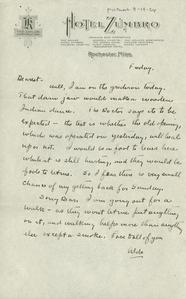 Hotel Zumbro
Rochester, Minn.
Friday.
Dearest -
Well, I am on the gridiron today.
That darn jaw would make a wooden
Indian dance. The Doctor says it to be
expected - the test is whether the old
which was operated on yesterday, will
up or not. I would be a fool to leave here
while it is still hurting, and they would be
fools to let me. So I fear there is very small
chance of my getting back for Sunday.
Sorry Dear. I am going out for a
walk - as they won't let me put anything
on it, and walking helps more than anything
else except a smoke. Love to all of you
Aldo